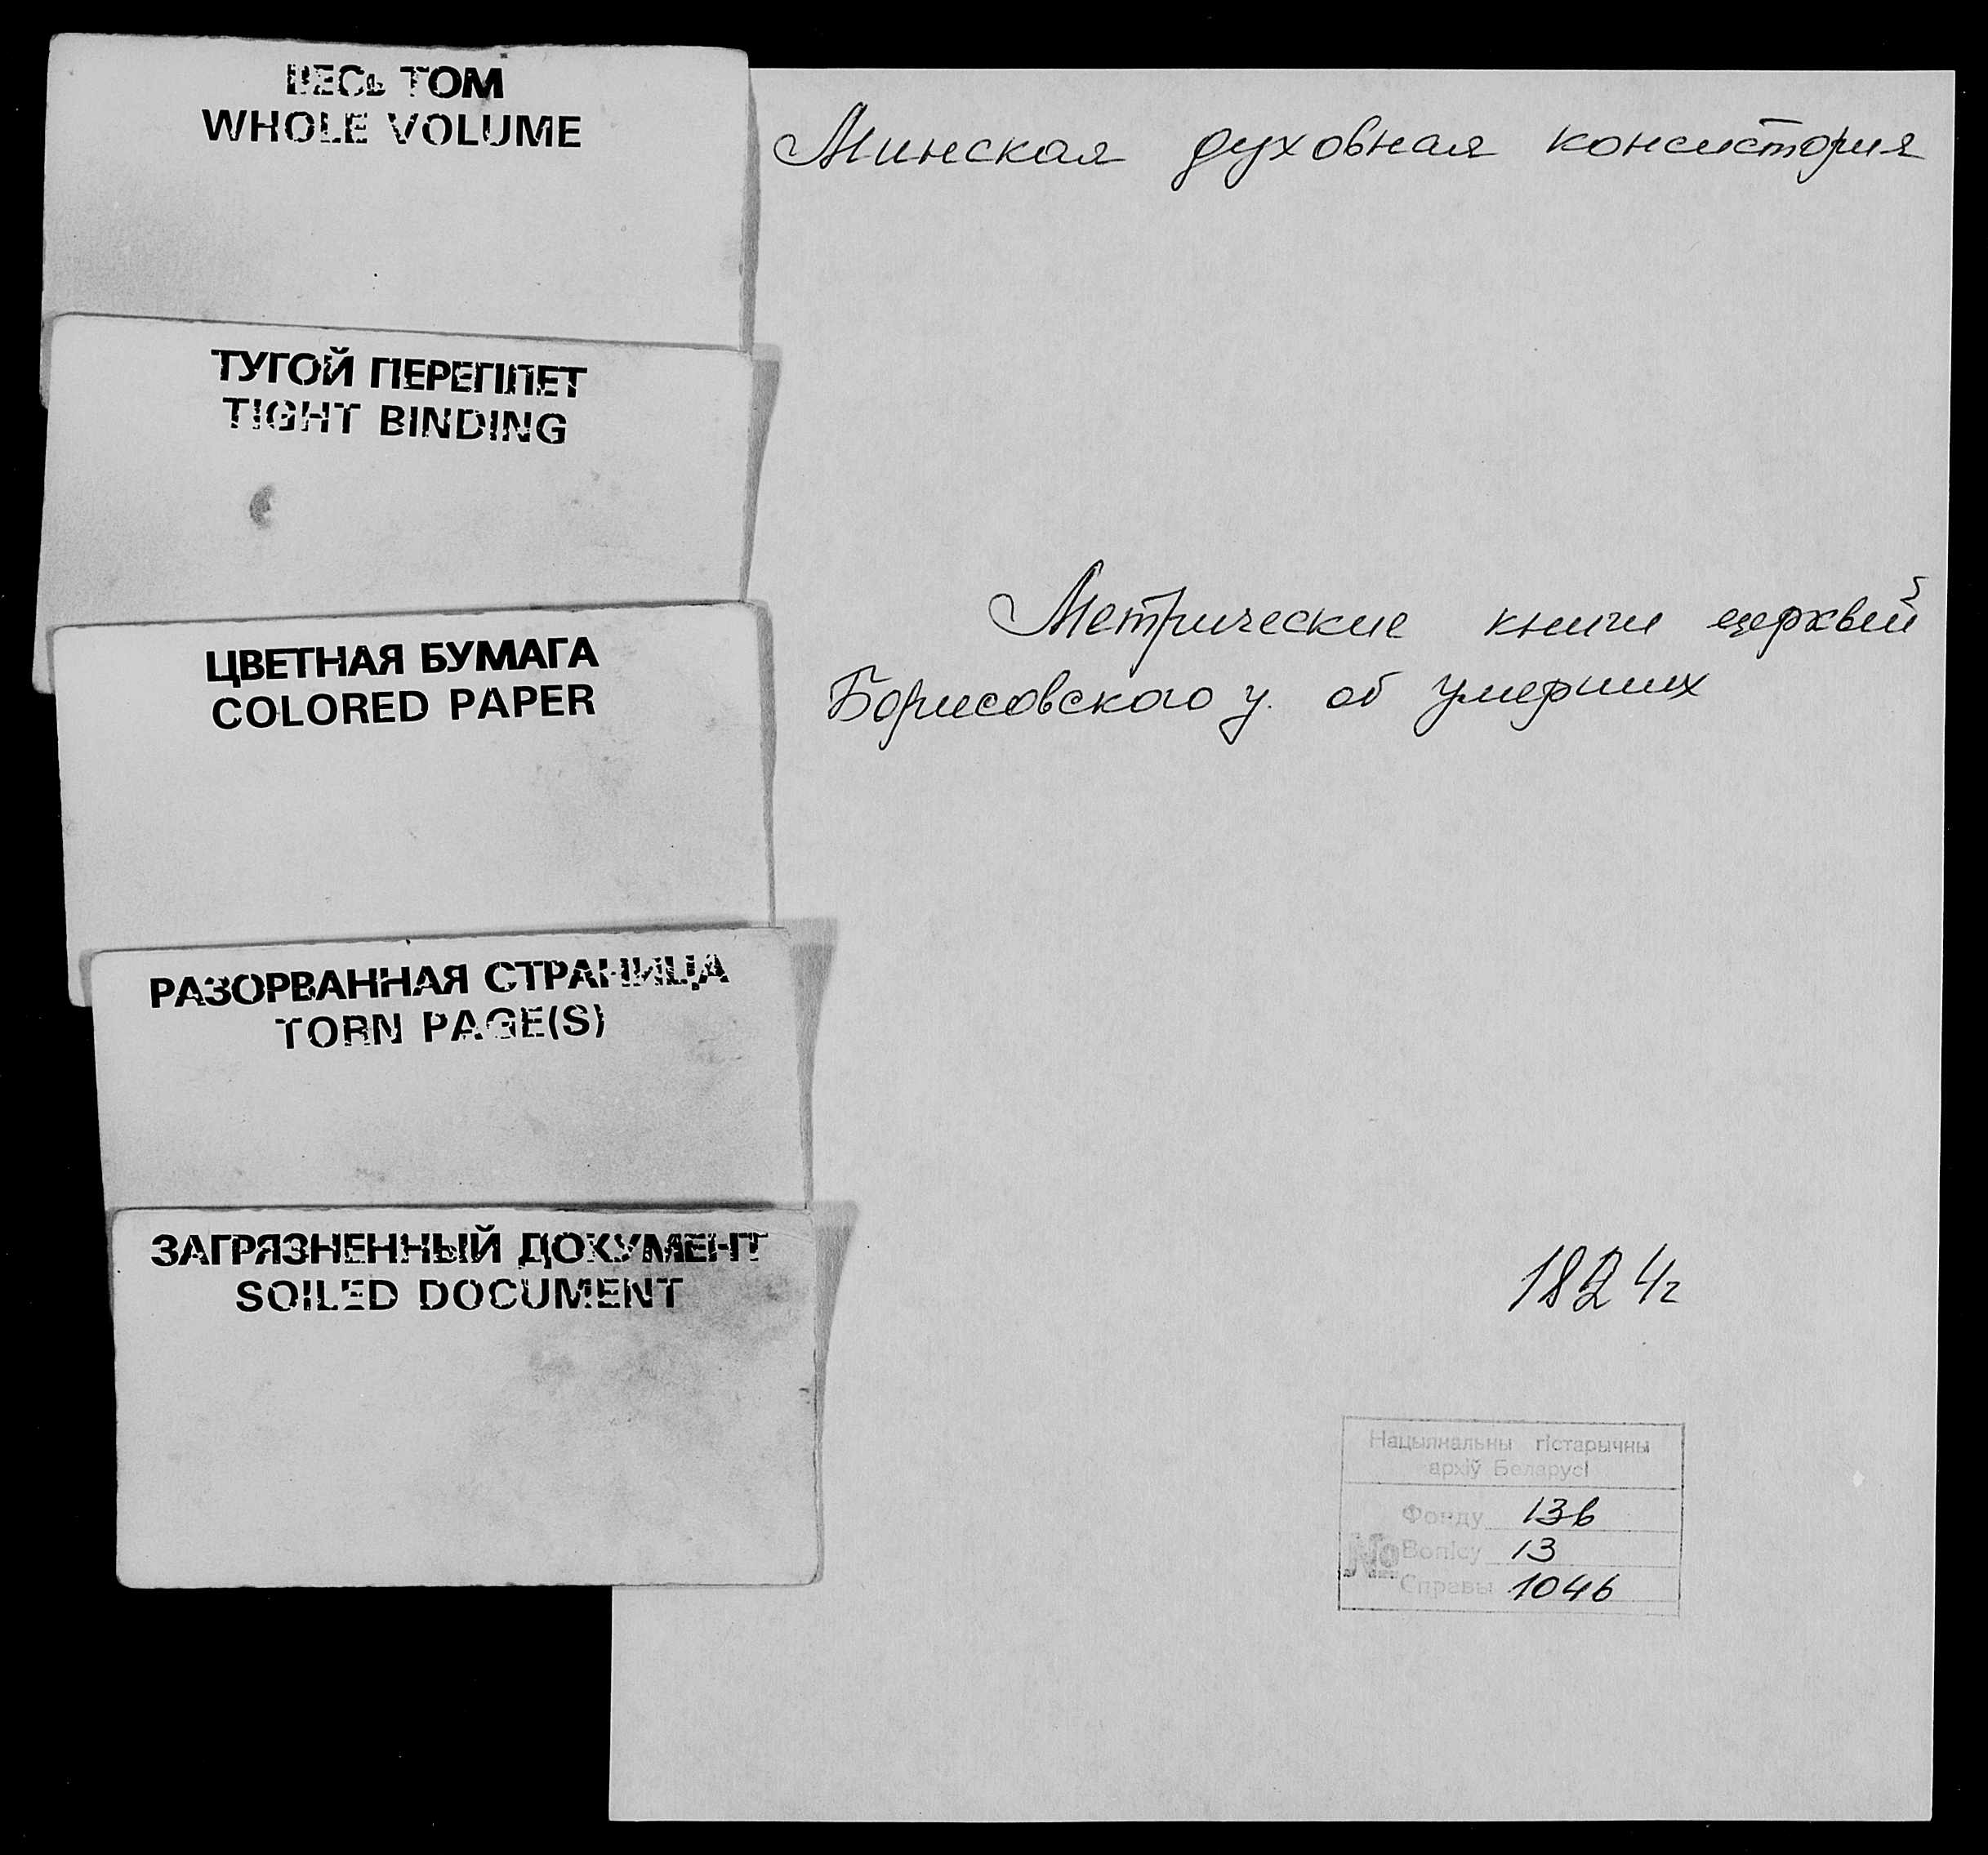 ВЕСЬ ТОМ
WHOLE VOLUME
ТУГОЙ ПЕРЕПЛЕТ
TIGHT BINDING
ЦВЕТНАЯ БУМАГА
COLORED PAPER
РАЗОРВАННАЯ СТРАНИЦА
TORN PAGE(S)
ЗАГРЯЗНЕННЫЙ ДОКУМЕНТ
SOILED DOCUMENT
Минская духовная консистория
Метрические книги церквей
Борисовского у. об умерших
1824г
Нацыянальны гістарычны
архіў Беларусі
Фонду 136
№ Вопісу 13
Справы 1046